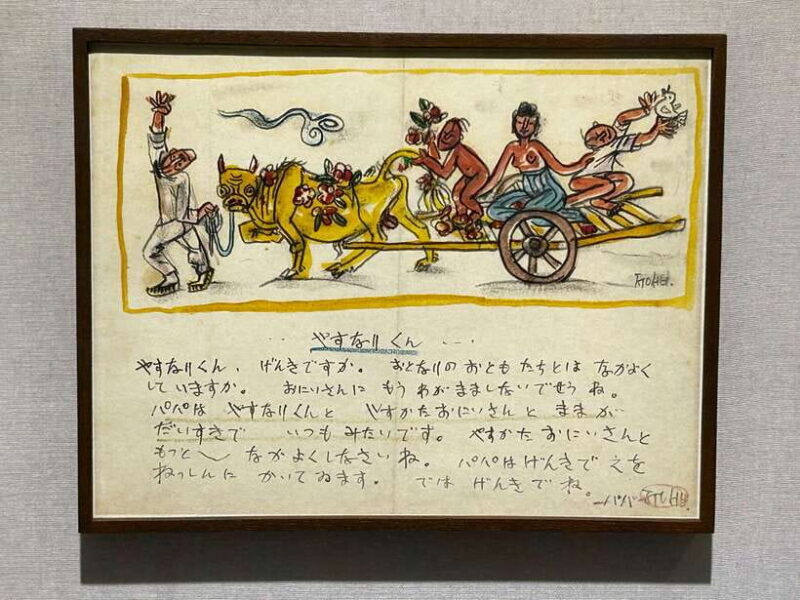 RYOHEI.
‥ やすなりくん ‥‥
やすなりくん、げんきですか。おとなりのおともだちとは なかよく
していますか。 おにいさんに もう わがまましないでせうね。
パパは やすなりくんと やすかたおにいさんと ままが
だいすきで いつも みたいです。 やすかた おにいさんと
もっと〳〵 なかよくしなさいね。 パパはげんきで えを
ねっしんに かいてゐます。 では げんきでね。
ーパパー RYOHEI.